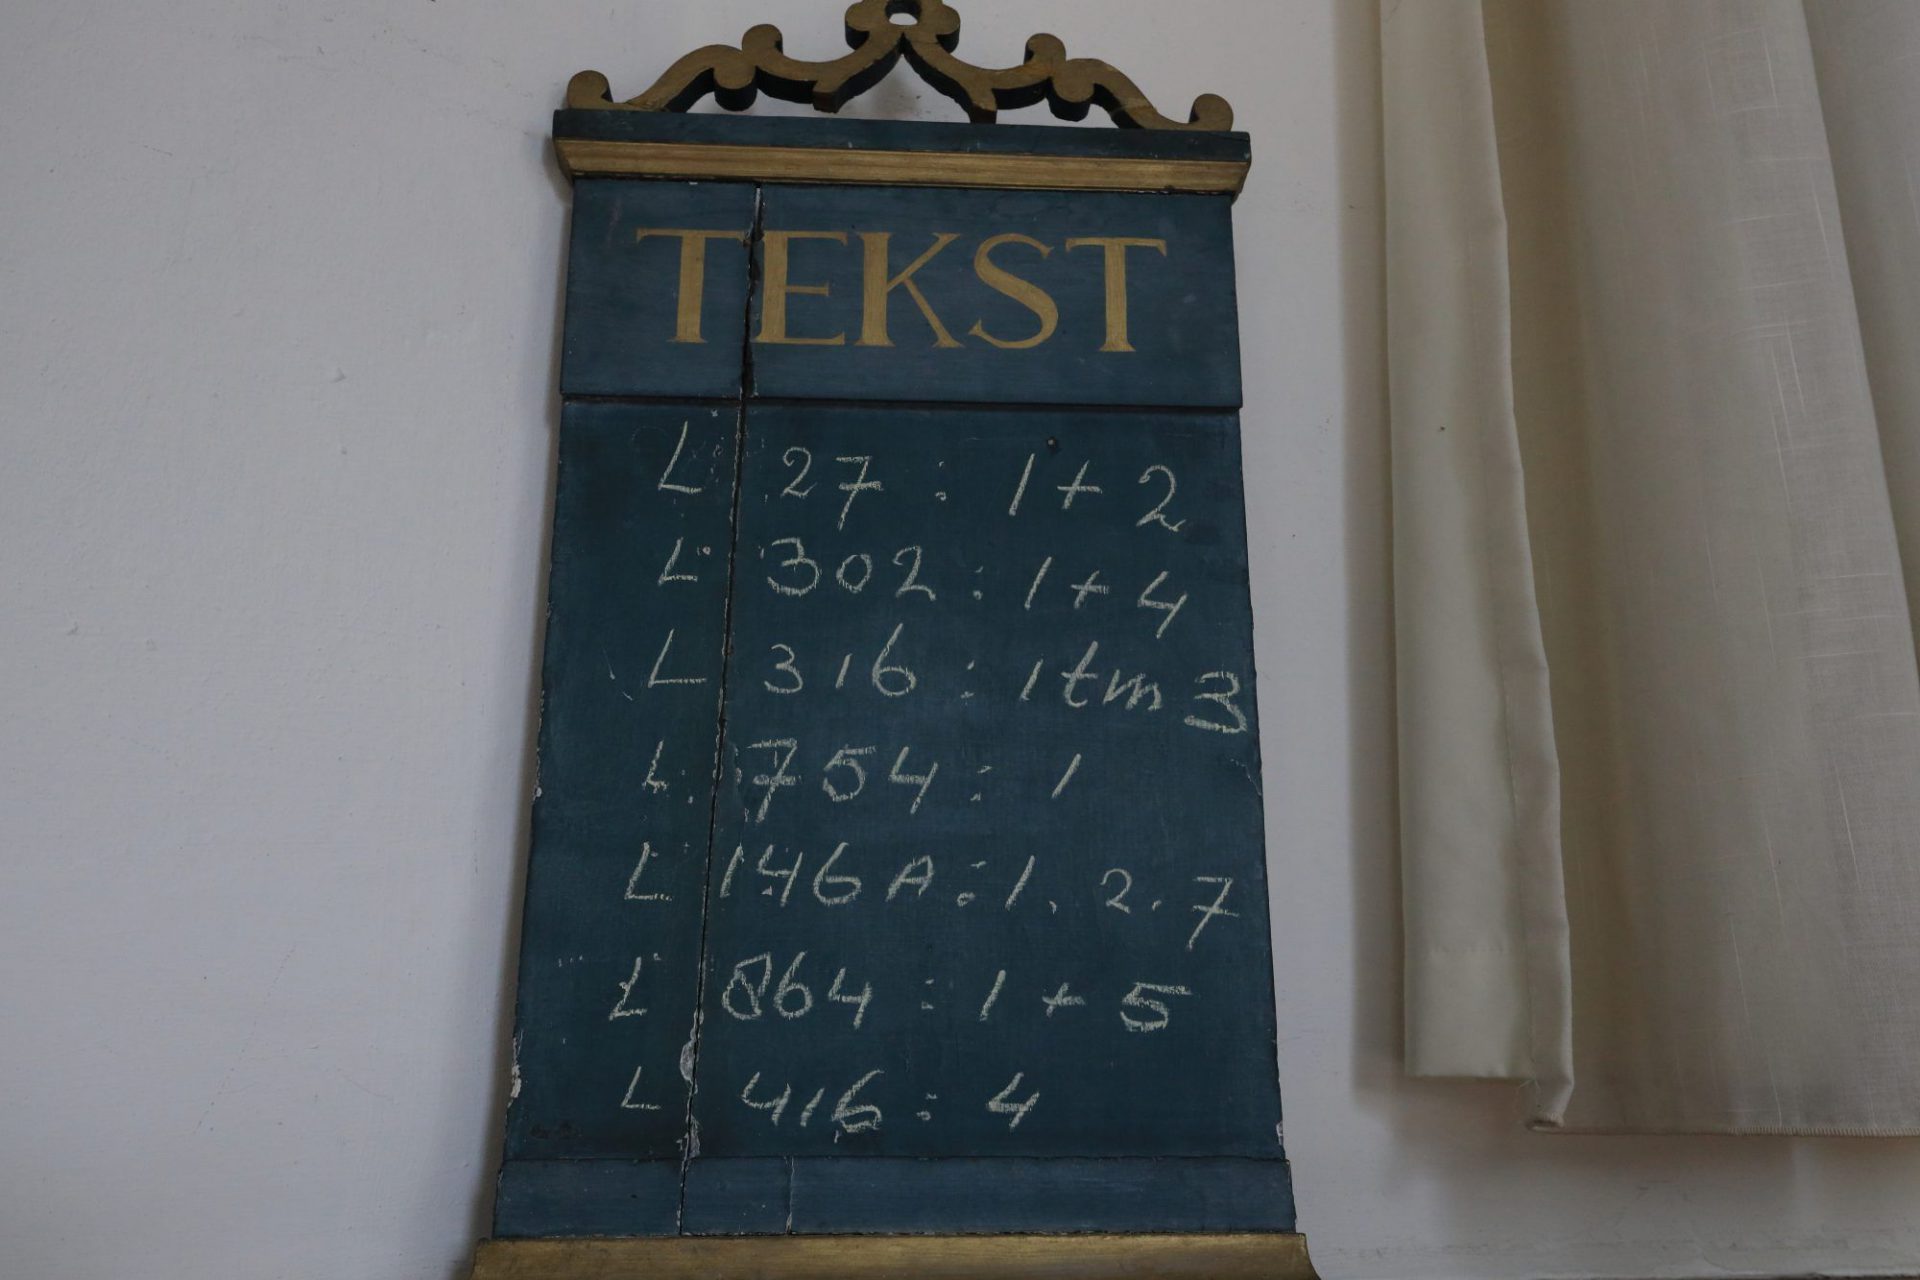 TEKST
L 27 : 1 + 2
L 302 : 1 + 4
L 316 : 1 tm 3
L. 754 : 1
L 146 A : 1. 2. 7
L 864 : 1 + 5
L 416 : 4